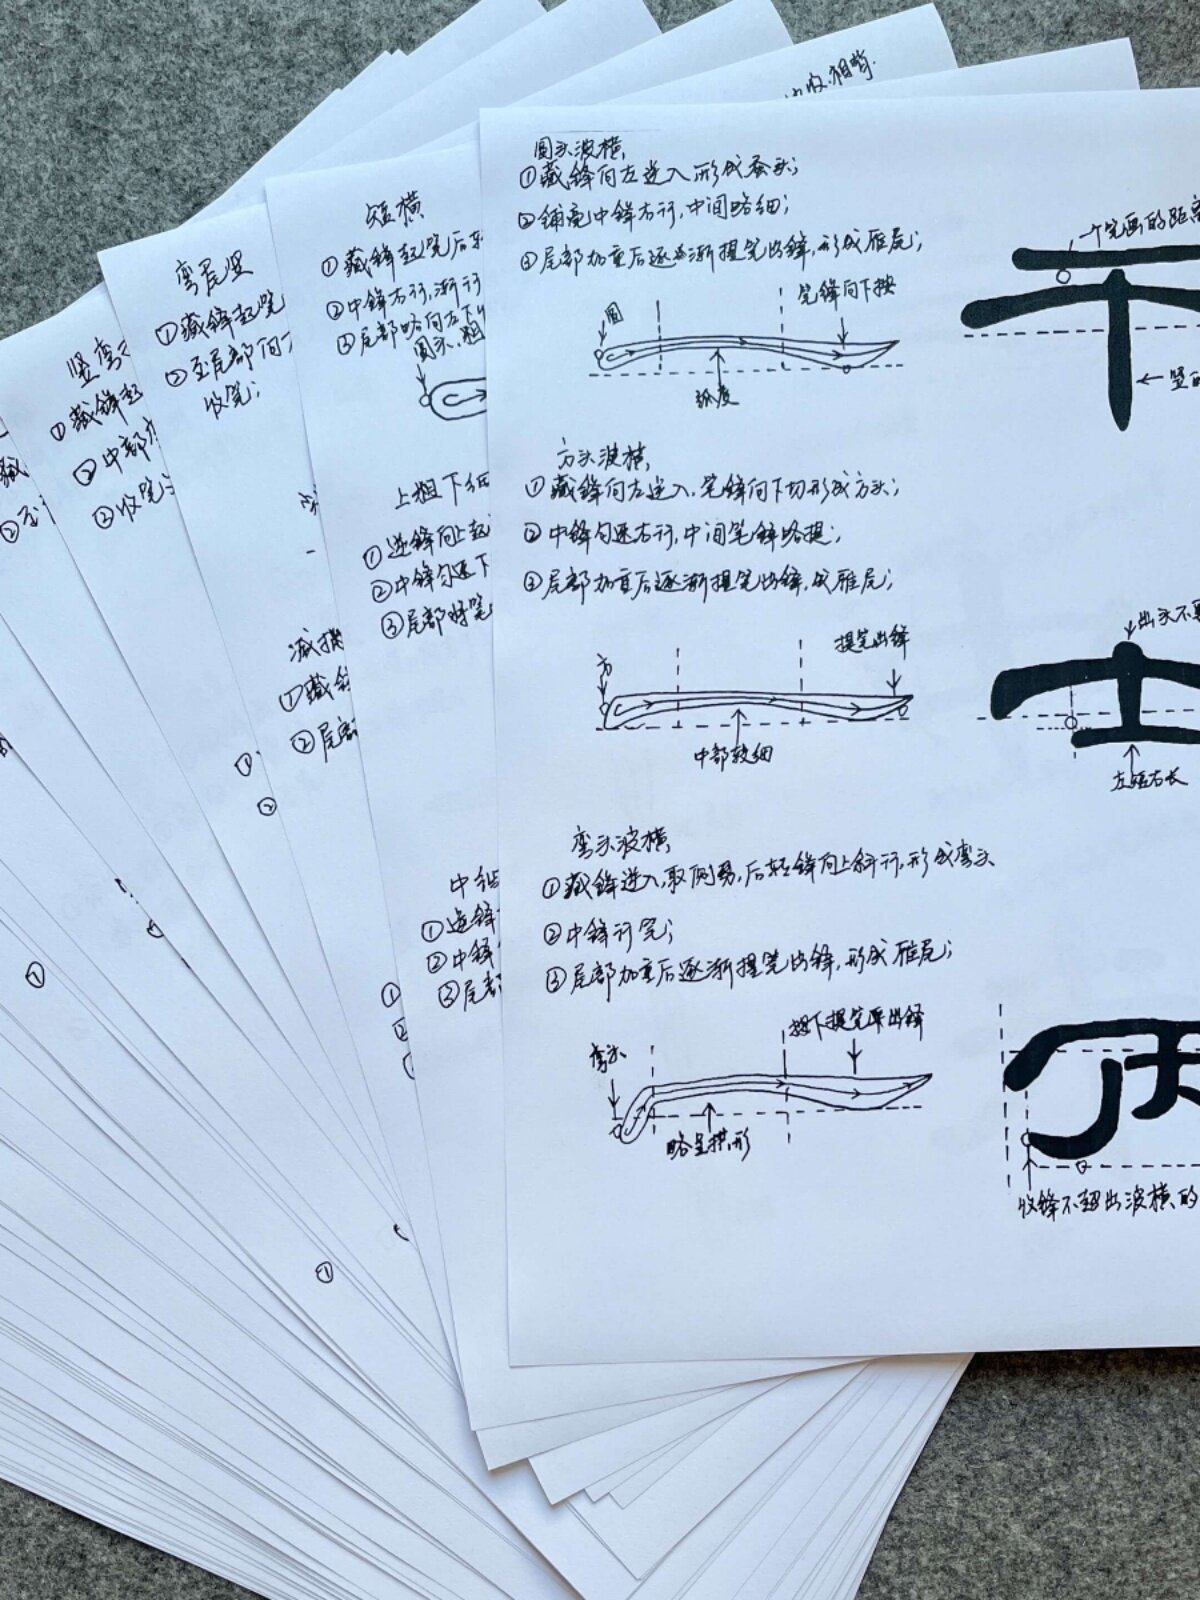 圆头波横
①藏锋向左逆入形成蚕头;
②铺毫中锋右行,中间略细;
③尾部加重后逐渐提笔出锋,形成雁尾;
圆
笔锋向下按
弧度
一个笔画的距离
竖的
方头波横
①藏锋向左逆入,笔锋向下切形成方头;
②中锋匀速右行,中间笔锋略提;
③尾部加重后逐渐提笔出锋,成雁尾;
方
提笔出锋
中部较细
出头不要
士
左短右长
弯头波横
①藏锋逆入,取侧势,后转锋向上斜行,形成弯头
②中锋行笔;
③尾部加重后逐渐提笔出锋,形成雁尾;
弯头
按下提笔再出锋
略呈拱形
收锋不超出波横的
短横
①藏锋起笔后
②中锋右行,渐行
③尾部略向左下
圆头,粗
上粗下细
①逆锋向上起
②中锋匀速下
③尾部将笔
中细
①逆锋
②中锋
③尾部
弯尾竖
①藏锋起笔
②至尾部向
收笔;
减捺
①藏锋
②尾部
①
②
竖弯
①藏锋起
②中部
③收笔
藏
②至
收相背.
①
①